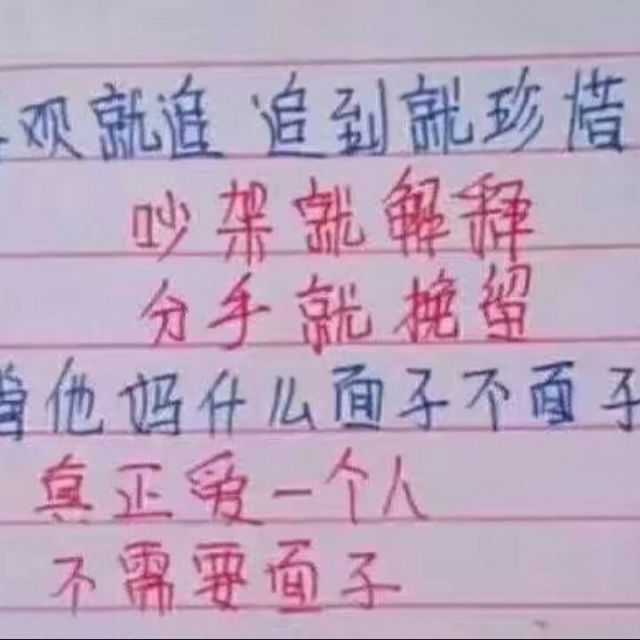 喜欢就追 追到就珍惜
吵架就解释
分手就挽留
管他妈什么面子不面子
真正爱一个人
不需要面子